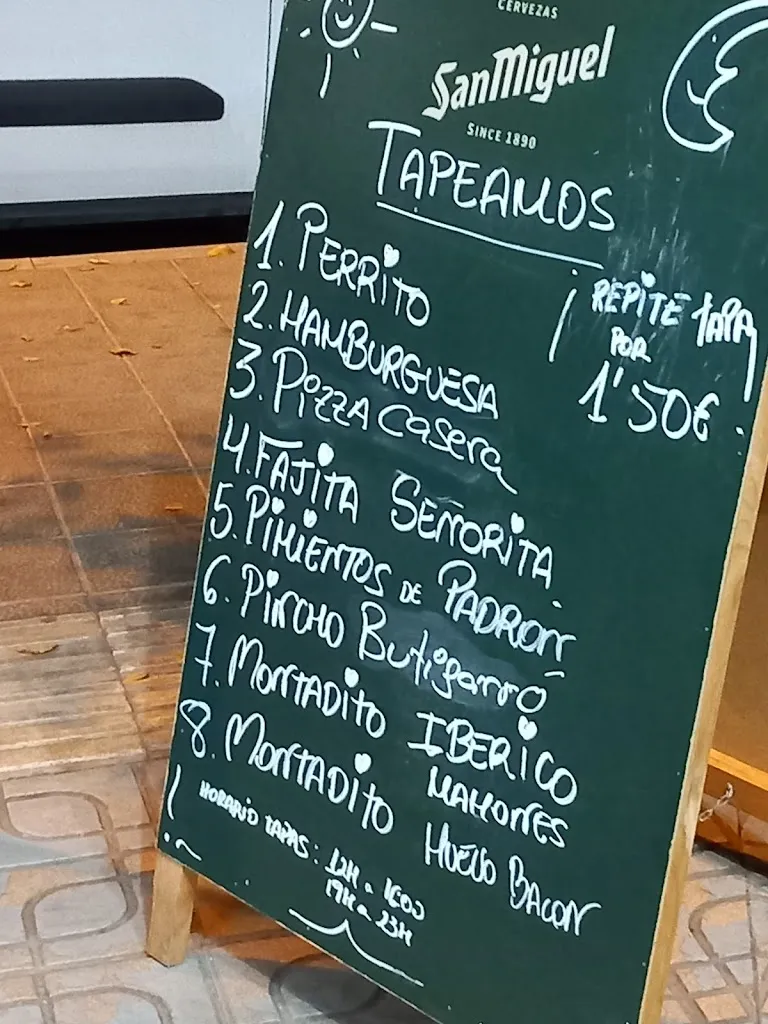 CERVEZAS
SanMiguel
SINCE 1890
TAPEAMOS
1. PERRITO
2. HAMBURGUESA
3. PizzA casera
4. FAJITA SEÑORITA
5. PIMIENTOS DE PADRON
6. PINCHO Butifarró
7. MONTADITO IBERICO
MAHONES
8. MONTADITO HUEVO BACON
REPITE TAPA
POR
1'50€.
HORARIO TAPAS: 12H a 16:00
19H a 23H